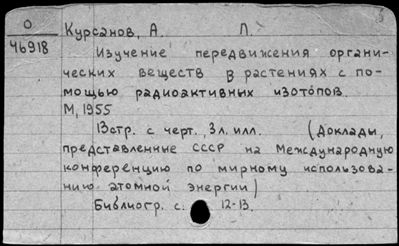 О
46918
Курсанов, А. Л.
Изучение передвижения органи-
ческих веществ в растениях с по-
мощью радиоактивных изотопов.
М, 1955
13стр. с черт., 3л. илл. (Доклады,
представленные СССР на Международную
конференцию по мирному использова-
нию атомной энергии)
Библиогр. с. 12-13.